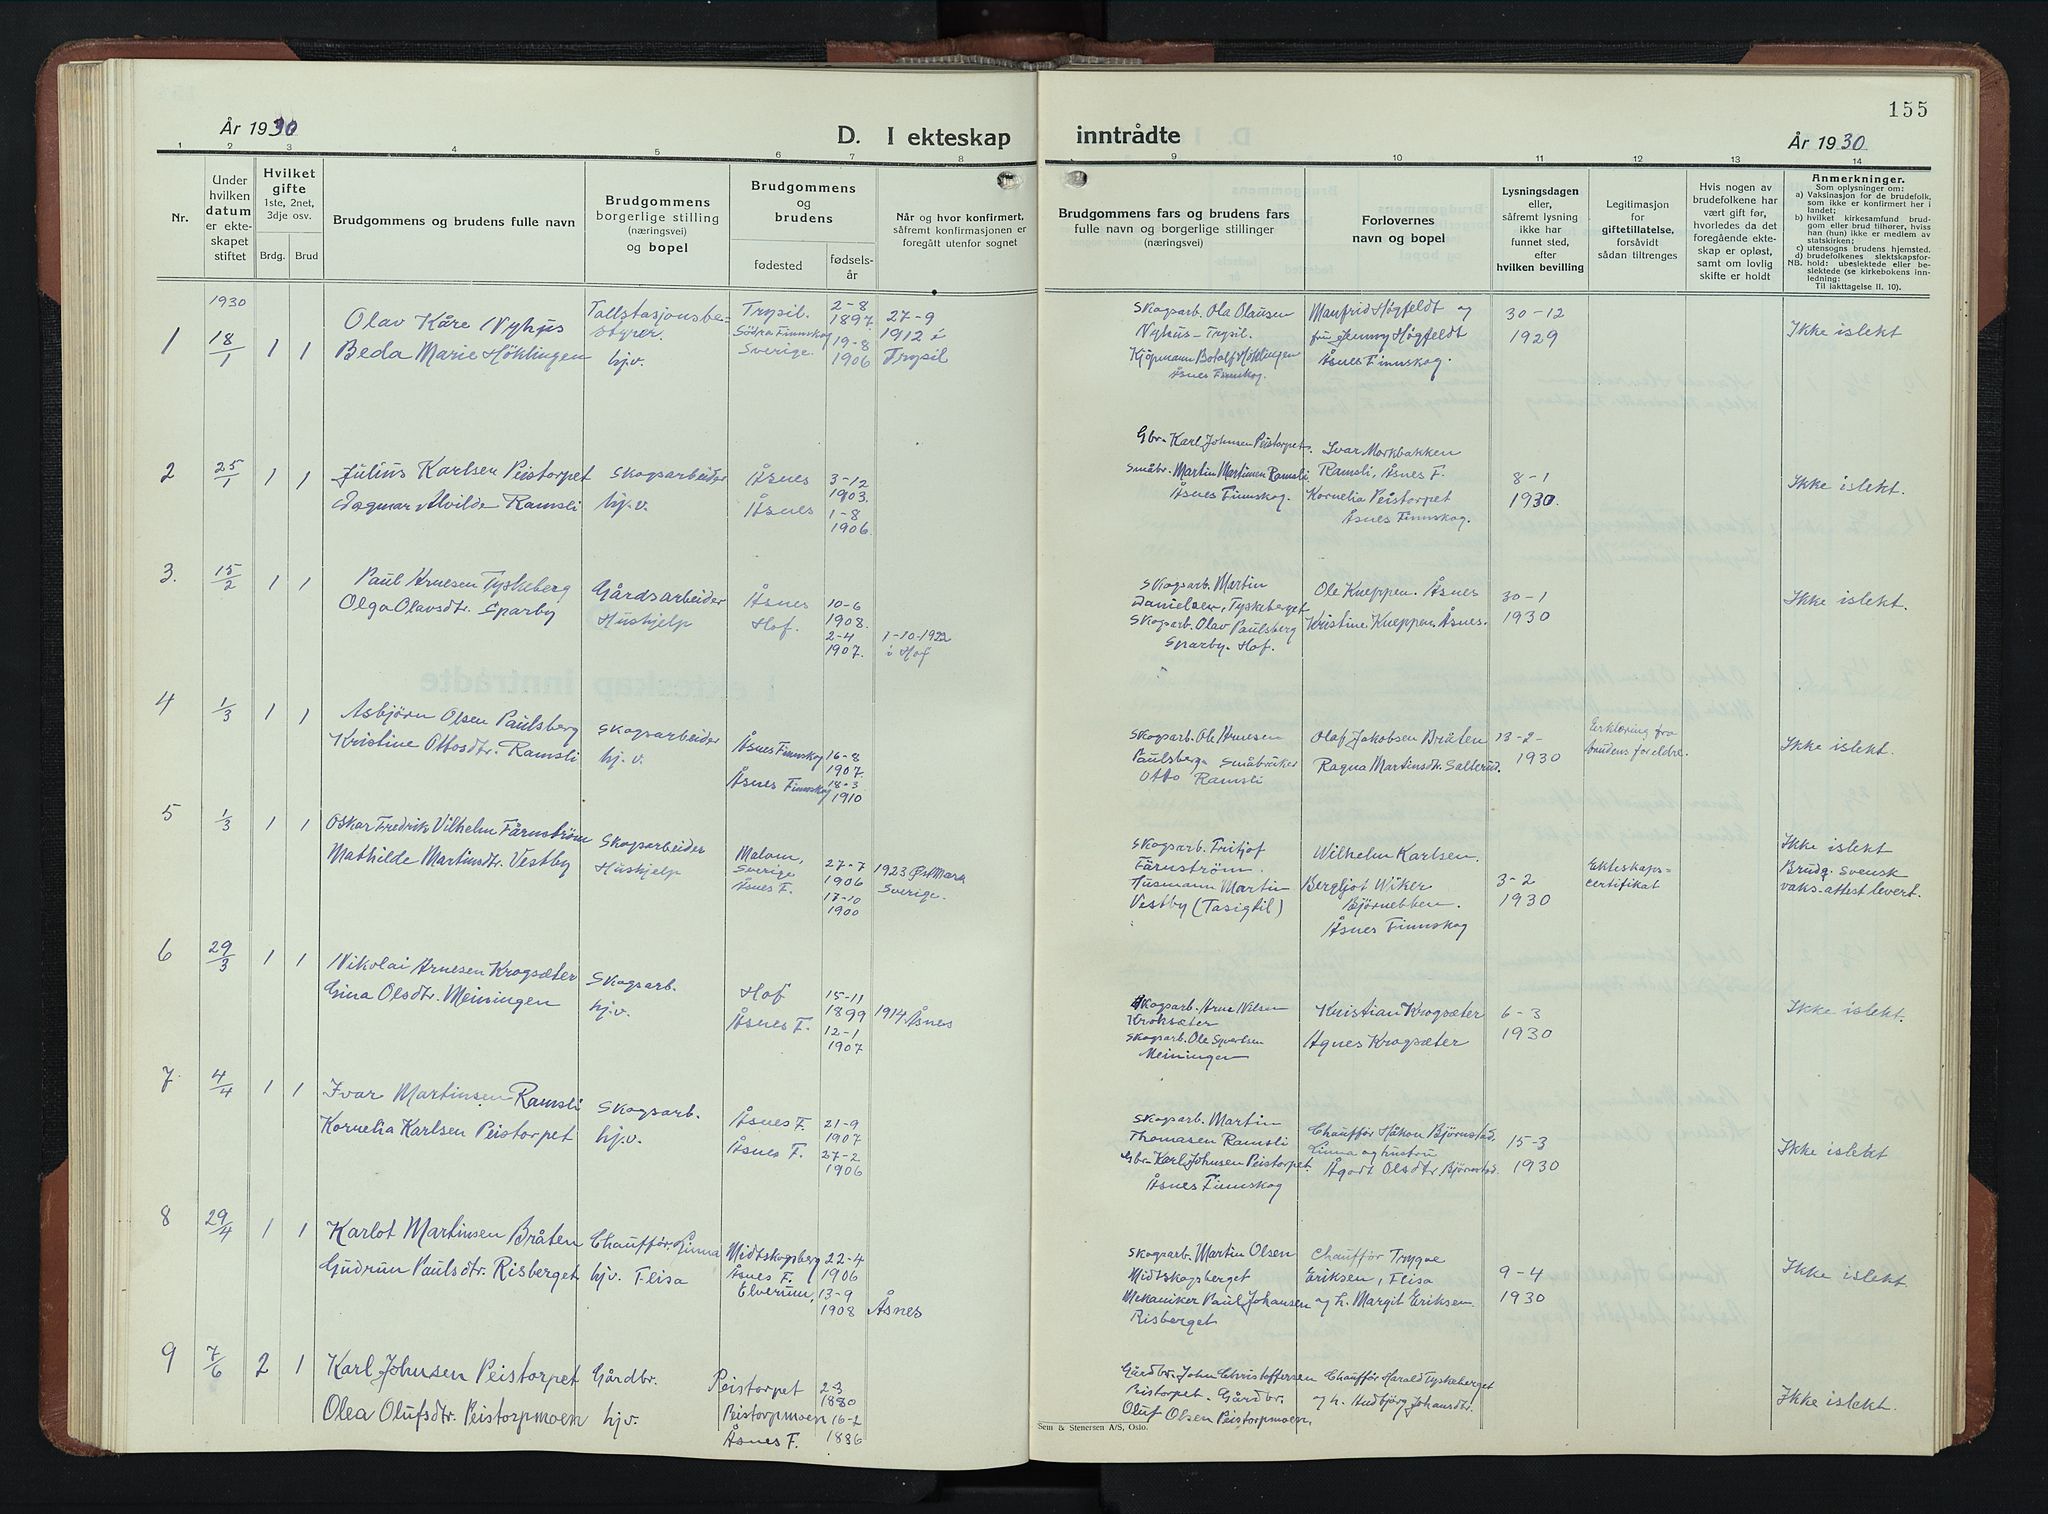 155
År 1930
D. I ekteskap inntrådte
År 1930
1 2 3 4 5 6 7 8 9 10 11 12 13 14
Nr.
Under hvilken datum er ekteskapet stiftet
Hvilket gifte 1ste, 2net, 3dje osv.
Brdg. Brud
Brudgommens og brudens fulle navn
Brudgommens borgerlige stilling (næringsvei) og bopel
Brudgommens og brudens
fødested
fødselsår
Når og hvor konfirmert, såfremt konfirmasjonen er foregått utenfor sognet
Brudgommens fars og brudens fars fulle navn og borgerlige stillinger (næringsvei)
Forlovernes navn og bopel
Lysningsdagen eller, såfremt lysning ikke har funnet sted, efter hvilken bevilling
Legitimasjon for giftetillatelse, forsåvidt sådan tiltrenges
Hvis nogen av brudefolkene har vært gift før, hvorledes da det foregående ekteskap er opløst, samt om lovlig skifte er holdt
Anmerkninger.
Som oplysninger om:
a) Vaksinasjon for de brudefolk, som ikke er konfirmert her i landet;
b) hvilket kirkesamfund brudgom eller brud tilhører, hviss han (hun) ikke er medlem av statskirken;
c) utensogns brudens hjemsted.
d) brudefolkenes slektskapsforhold: ubeslektede eller beslektede (se kirkebokens innledning:
NB.
Til iakttagelse II. 10).
1930
1 18/1 1 1 Olav Kåre Nyhus Tallstasjonsbestyrer. Trysil. 2-8 1897. 27-9 1912 i Trysil
Beda Marie Höklingen hj.v. Södra Finnskog Sverige 19-8 1906
Skogsarb. Ola Olausen Nyhus - Trysil. Manfrid Högfeldt og 30-12 1929 Ikke islekt
Kjöpmann Botolf Höklingen Åsnes Finnskog. fru Jenny Högfeldt Åsnes Finnskog.
2 25/1 1 1 Julius Karlsen Peistorpet Skogsarbeider Åsnes 3-12 1903.
Dagmar Alvilde Ramsli hj.v. Åsnes 1-8 1906.
Gbr. Karl Johnsen Peistorpet. Ivar Morkbakken Ramsli, Åsnes F. 8-1 1930 Ikke islekt.
Småbr. Martin Martinsen Ramsli. Åsnes Finnskog. Kornelia Peistorpet Åsnes Finnskog.
3. 15/2 1 1 Paul Arnesen Tyskeberg Gårdsarbeider Åsnes 10-6 1908.
Olga Olavsdtr. Sparby Hushjelp Hof. 2-4 1907. 1-10-1922 i Hof
Skogsarb. Martin Danielsen, Tyskeberget Ole Kneppen. Åsnes 30-1 1930 Ikke islekt.
Skogsarb. Olav Paulsberg Sparby. Hof. Kristine Kneppen, Åsnes.
4 1/3 1 1 Asbjörn Olsen Paulsberg Skogsarbeider Åsnes Finnskog 16-8 1907.
Kristine Ottosdtr. Ramsli hj.v. Åsnes Finnskog 18-3 1910
Skogsarb. Ole Arnesen Paulsberg Olaf Jakobsen Bråten 13-2- 1930 Erklæring fra brudens foreldre. Ikke islekt.
Småbruker Otto Ramsli Ragna Martinsdtr. Salterud.
5 1/3 1 1 Oskar Fredrik Vilhelm Färnström Skogsarbeider Malom, Sverige 27-7 1906 1923 Sverige.
Mathilde Martinsdtr. Vestby Hushjelp Åsnes F. 17-10 1900
Skogsarb. Fritjof Färnström. Wilhelm Karlsen. 3-2 1930 Ekteskapscertifikat Ikke islekt
Husmann Martin Vestby (Tasigtil) Bergljot Wiker Björnebben. Åsnes Finnskog Brudg. svensk vaks-attest levert.
6 29/3 1 1 Nikolai Arnesen Krogsæter Skogsarb. Hof 15-11 1899 1914 Åsnes
Gina Olsdtr. Meiningen hj.v. Åsnes F. 12-1 1907
Skogsarb. Arne Nilsen Kroksæter Kristian Krogsæter 6-3 1930 Ikke islekt.
Skogsarb. Ole Sjvertsen Meiningen Agnes Krogsæter
7 4/4 1 1 Ivar Martinsen Ramsli Skogsarb. Åsnes F. 21-9 1907
Kornelia Karlsen Peistorpet hj.v. Åsnes F. 27-2 1906
Skogsarb. Martin Thomasen Ramsli Chaufför Håkon Björnstad. Linna og hustru 15-3 1930 Ikke islekt
Gbr. Karl Johnsen Peistorpet. Åsnes Finnskog Ågot Olsdtr. Björnstad.
8 29/4 1 1 Karlot Martinsen Bråten Chauffør, Linna Midtskogsberg Åsnes F. 22-4 1906
Gudrun Paulsdtr. Risberget hj.v. Flisa Elverum, 13-9 1908 Åsnes
Skogsarb. Martin Olsen Midtskogsberget Chauffør Trygve Eriksen, Flisa 9-4 1930 Ikke islekt
Mekaniker Paul Johansen Risberget og h. Margit Eriksen.
9 7/6 2 1 Karl Johnsen Peistorpet Gårdbr. Peistorpet 2-3 1880
Olea Olufsdtr. Peistorpmoen hj.v. Peistorpmoen Åsnes F. 16-2 1886
Gårdbr. John Christoffersen Peistorpet. Chauffør Harald Tyskeberget Ikke islekt.
Gårdbr. Oluf Olsen Peistorpmoen. og h. Hudbjörg Johansdtr.
Sem & Stenersen A/S, Oslo.